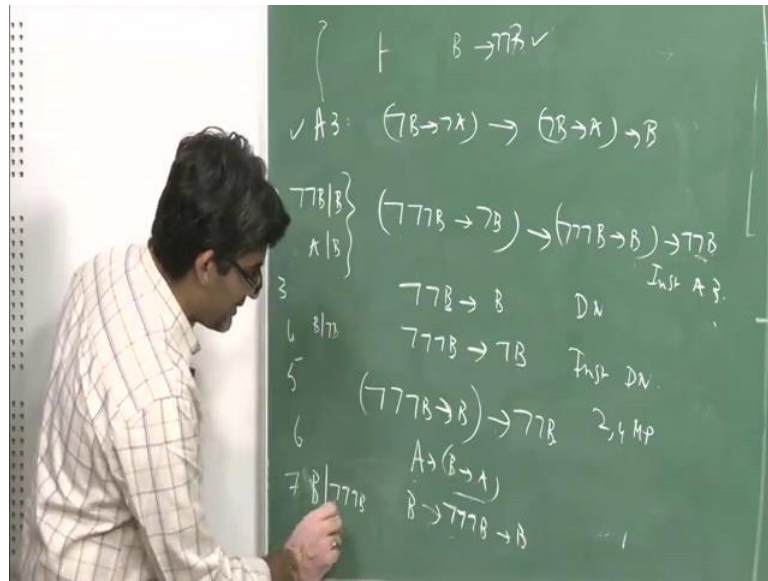 ⊢ B → ¬¬B ✓
✓ A3: (¬B → ¬A) → (¬B → A) → B
¬¬B|B
A|B
(¬¬¬B → ¬B) → (¬¬¬B → B) → ¬¬B
Inst A3.
3 ¬¬B → B DN
4 B|¬B ¬¬¬B → ¬B Inst DN.
5 (¬¬¬B → B) → ¬¬B 2,4 MP
6 A → (B → A)
7 B|¬¬¬B B → ¬¬¬B → B